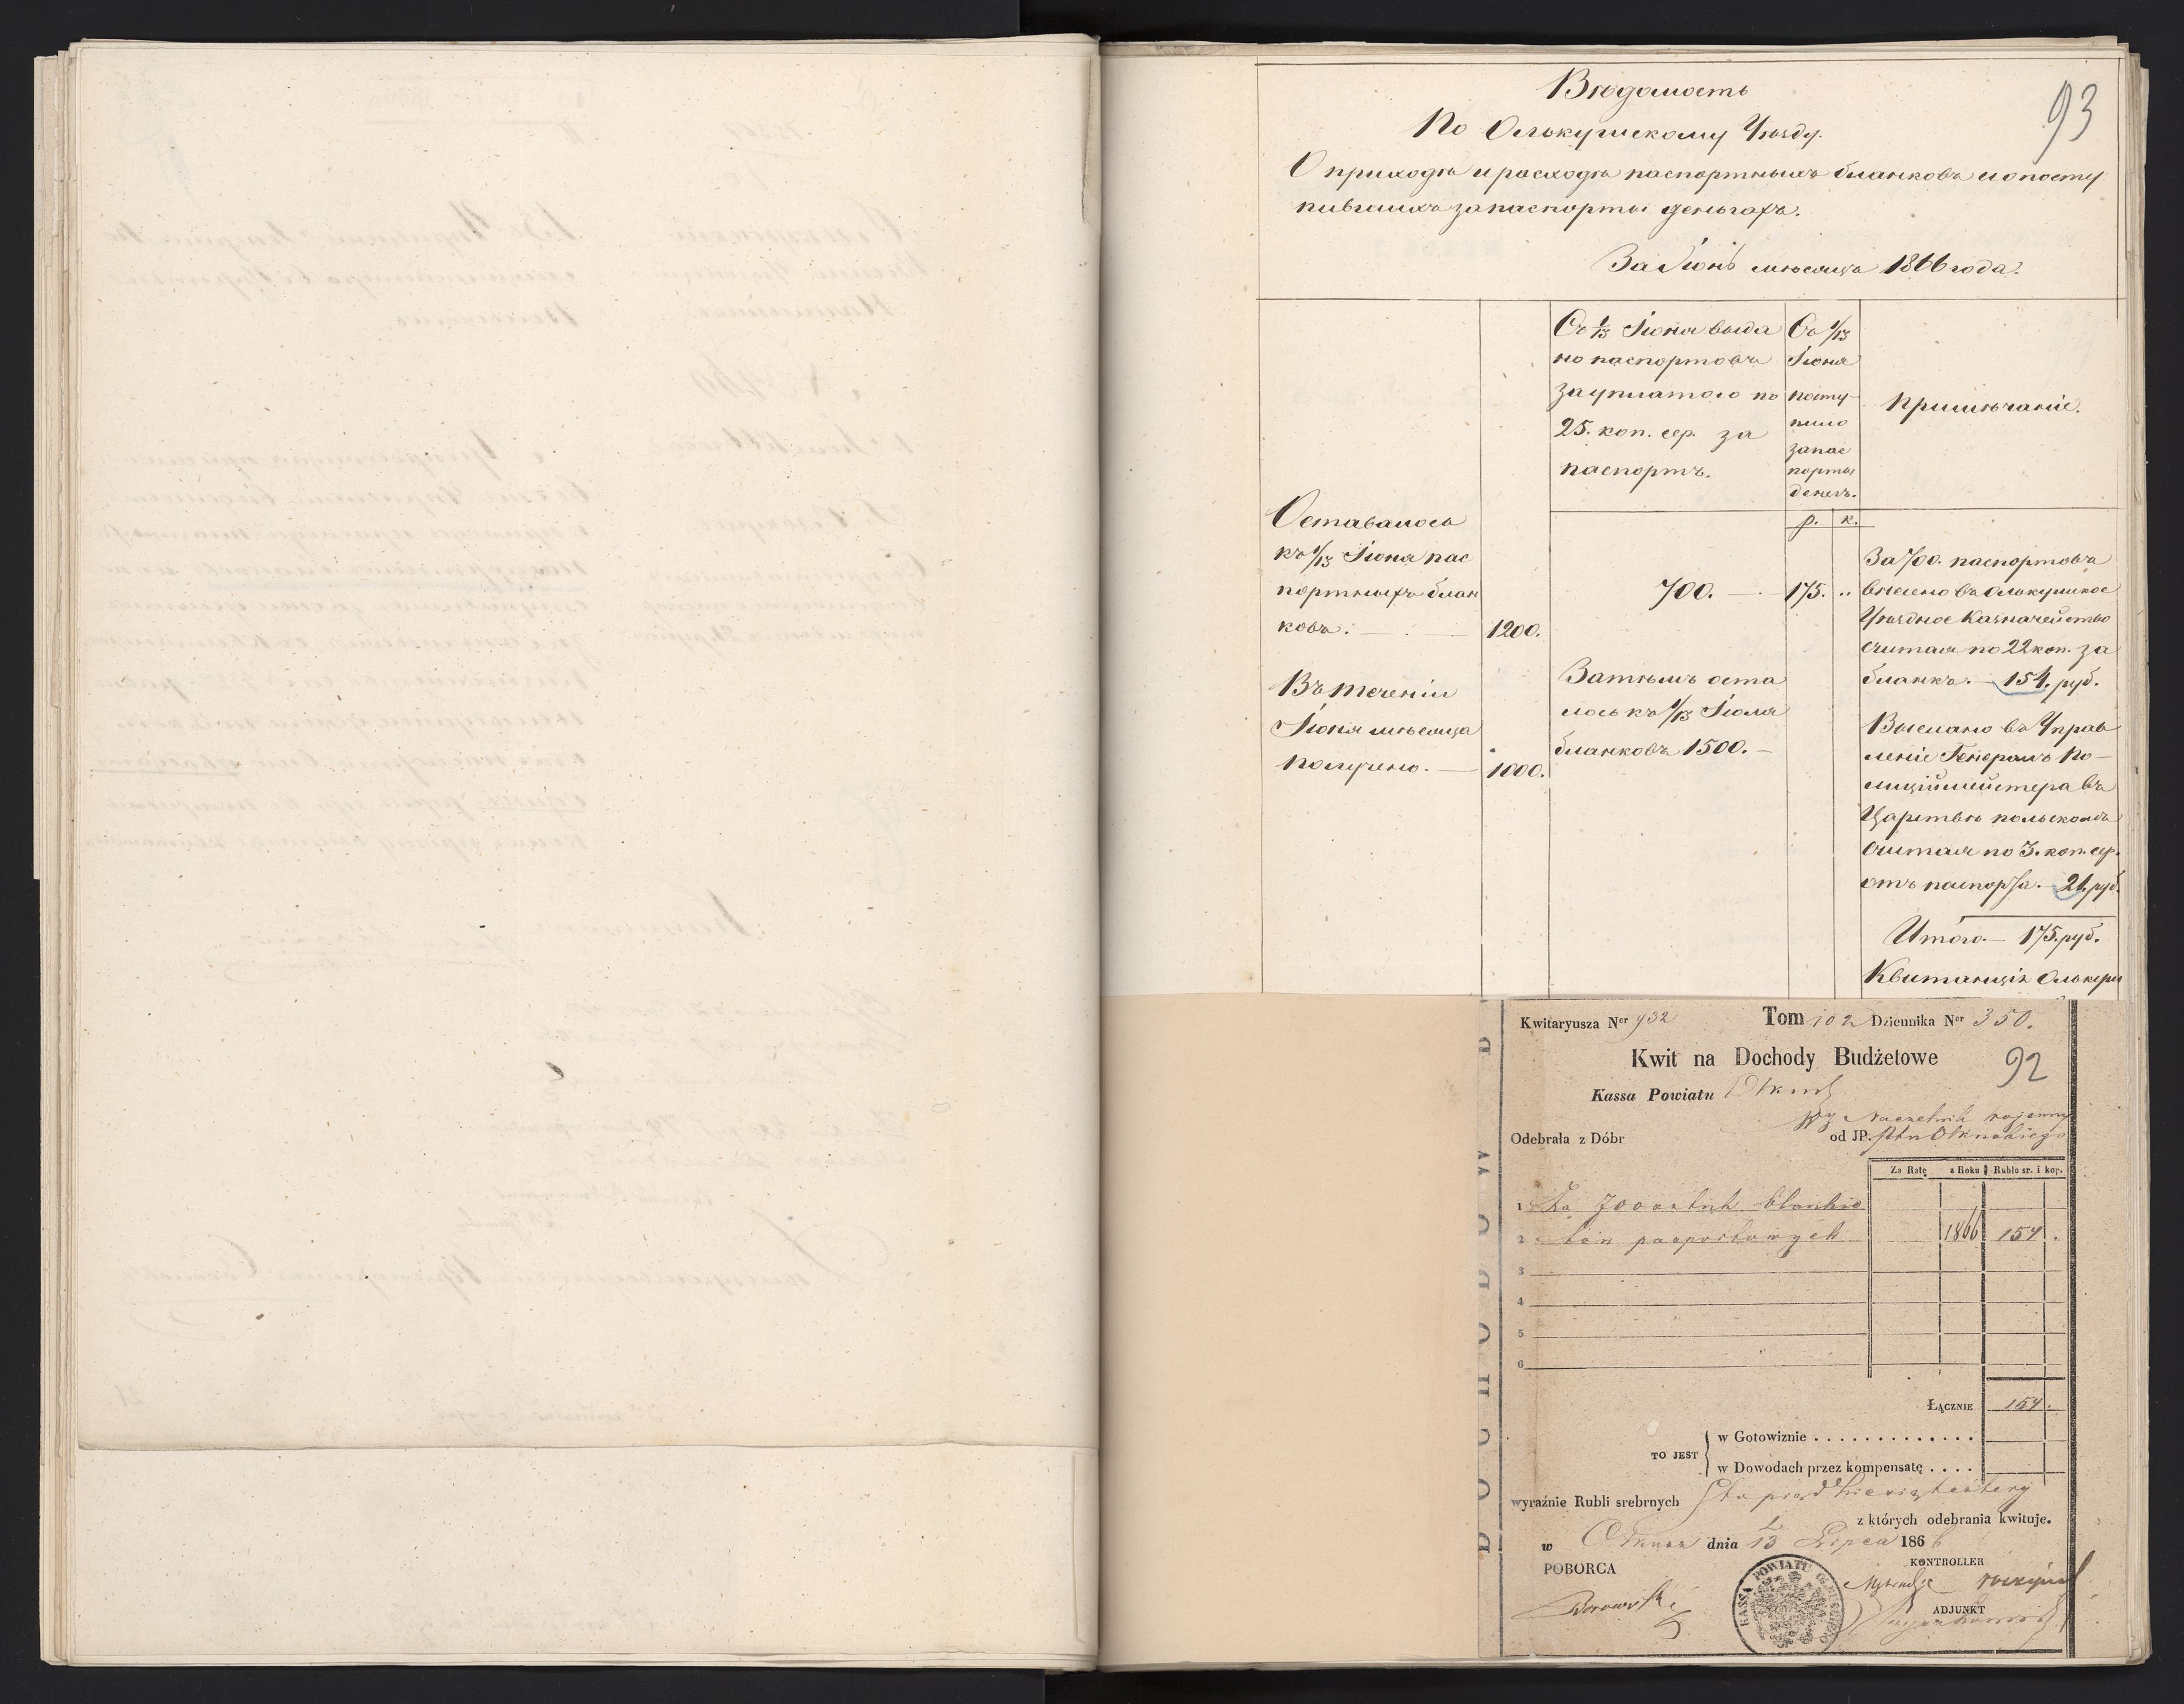 93
Вѣдомость
По Олькушскому Уѣзду.
О приходѣ и расходѣ паспортныхъ бланковъ и о посту
пившихъ за паспорты деньгахъ.
За Іюнь мѣсяцъ 1866 года.
Съ 1/13 Іюня выда
но паспортовъ
за уплатою по
25. коп. сер. за
паспортъ.
Съ 1/13
Іюня
посту-
пило
за пас
порты
денегъ.
р. к.
Примѣчаніе.
Оставалось
къ 1/13 Іюня пас
портныхъ блан
ковъ. — 1200.
Въ теченіи
Іюня мѣсяца
получено. — 1000.
700. —
Затѣмъ оста
лось къ 1/13 Іюля
бланковъ 1500. —
175. "
За 700. паспортовъ
внесено въ Олькушское
Уѣздное Казначейство
считая по 22 коп. за
бланкъ. — 154. руб.
Выслано въ Управ
леніе Генералъ По-
лиціймейстера въ
Царствѣ польскомъ
считая по 3. коп. сер.
отъ паспорта. — 21. руб.
Итого. — 175. руб.
Квитанція Олькуш
Kwitaryusza Ner 932 Tom 102 Dziennika Ner 350.
Kwit na Dochody Budżetowe
92
Kassa Powiatu Olkusk
Naczelnik wojenny
Odebrała z Dóbr od JP. Ptu Olkuskiego
Za Ratę z Roku Ruble sr. i kop.
1 Za 700 sztuk blankie
2 tów paszportowych 1866 154 .
3
4
5
6
ŁĄCZNIE 154 .
TO JEST
w Gotowiznie . . . . . . . . . . . . .
w Dowodach przez kompensatę . . . .
wyraźnie Rubli srebrnych Sto pięćdziesiąt cztery
z których odebrania kwituje.
w Olkusz dnia 1/13 Lipca 1866
POBORCA
KONTROLLER
Borowski
ADJUNKT
KASSA POWIATU
D O C H O D Ó W